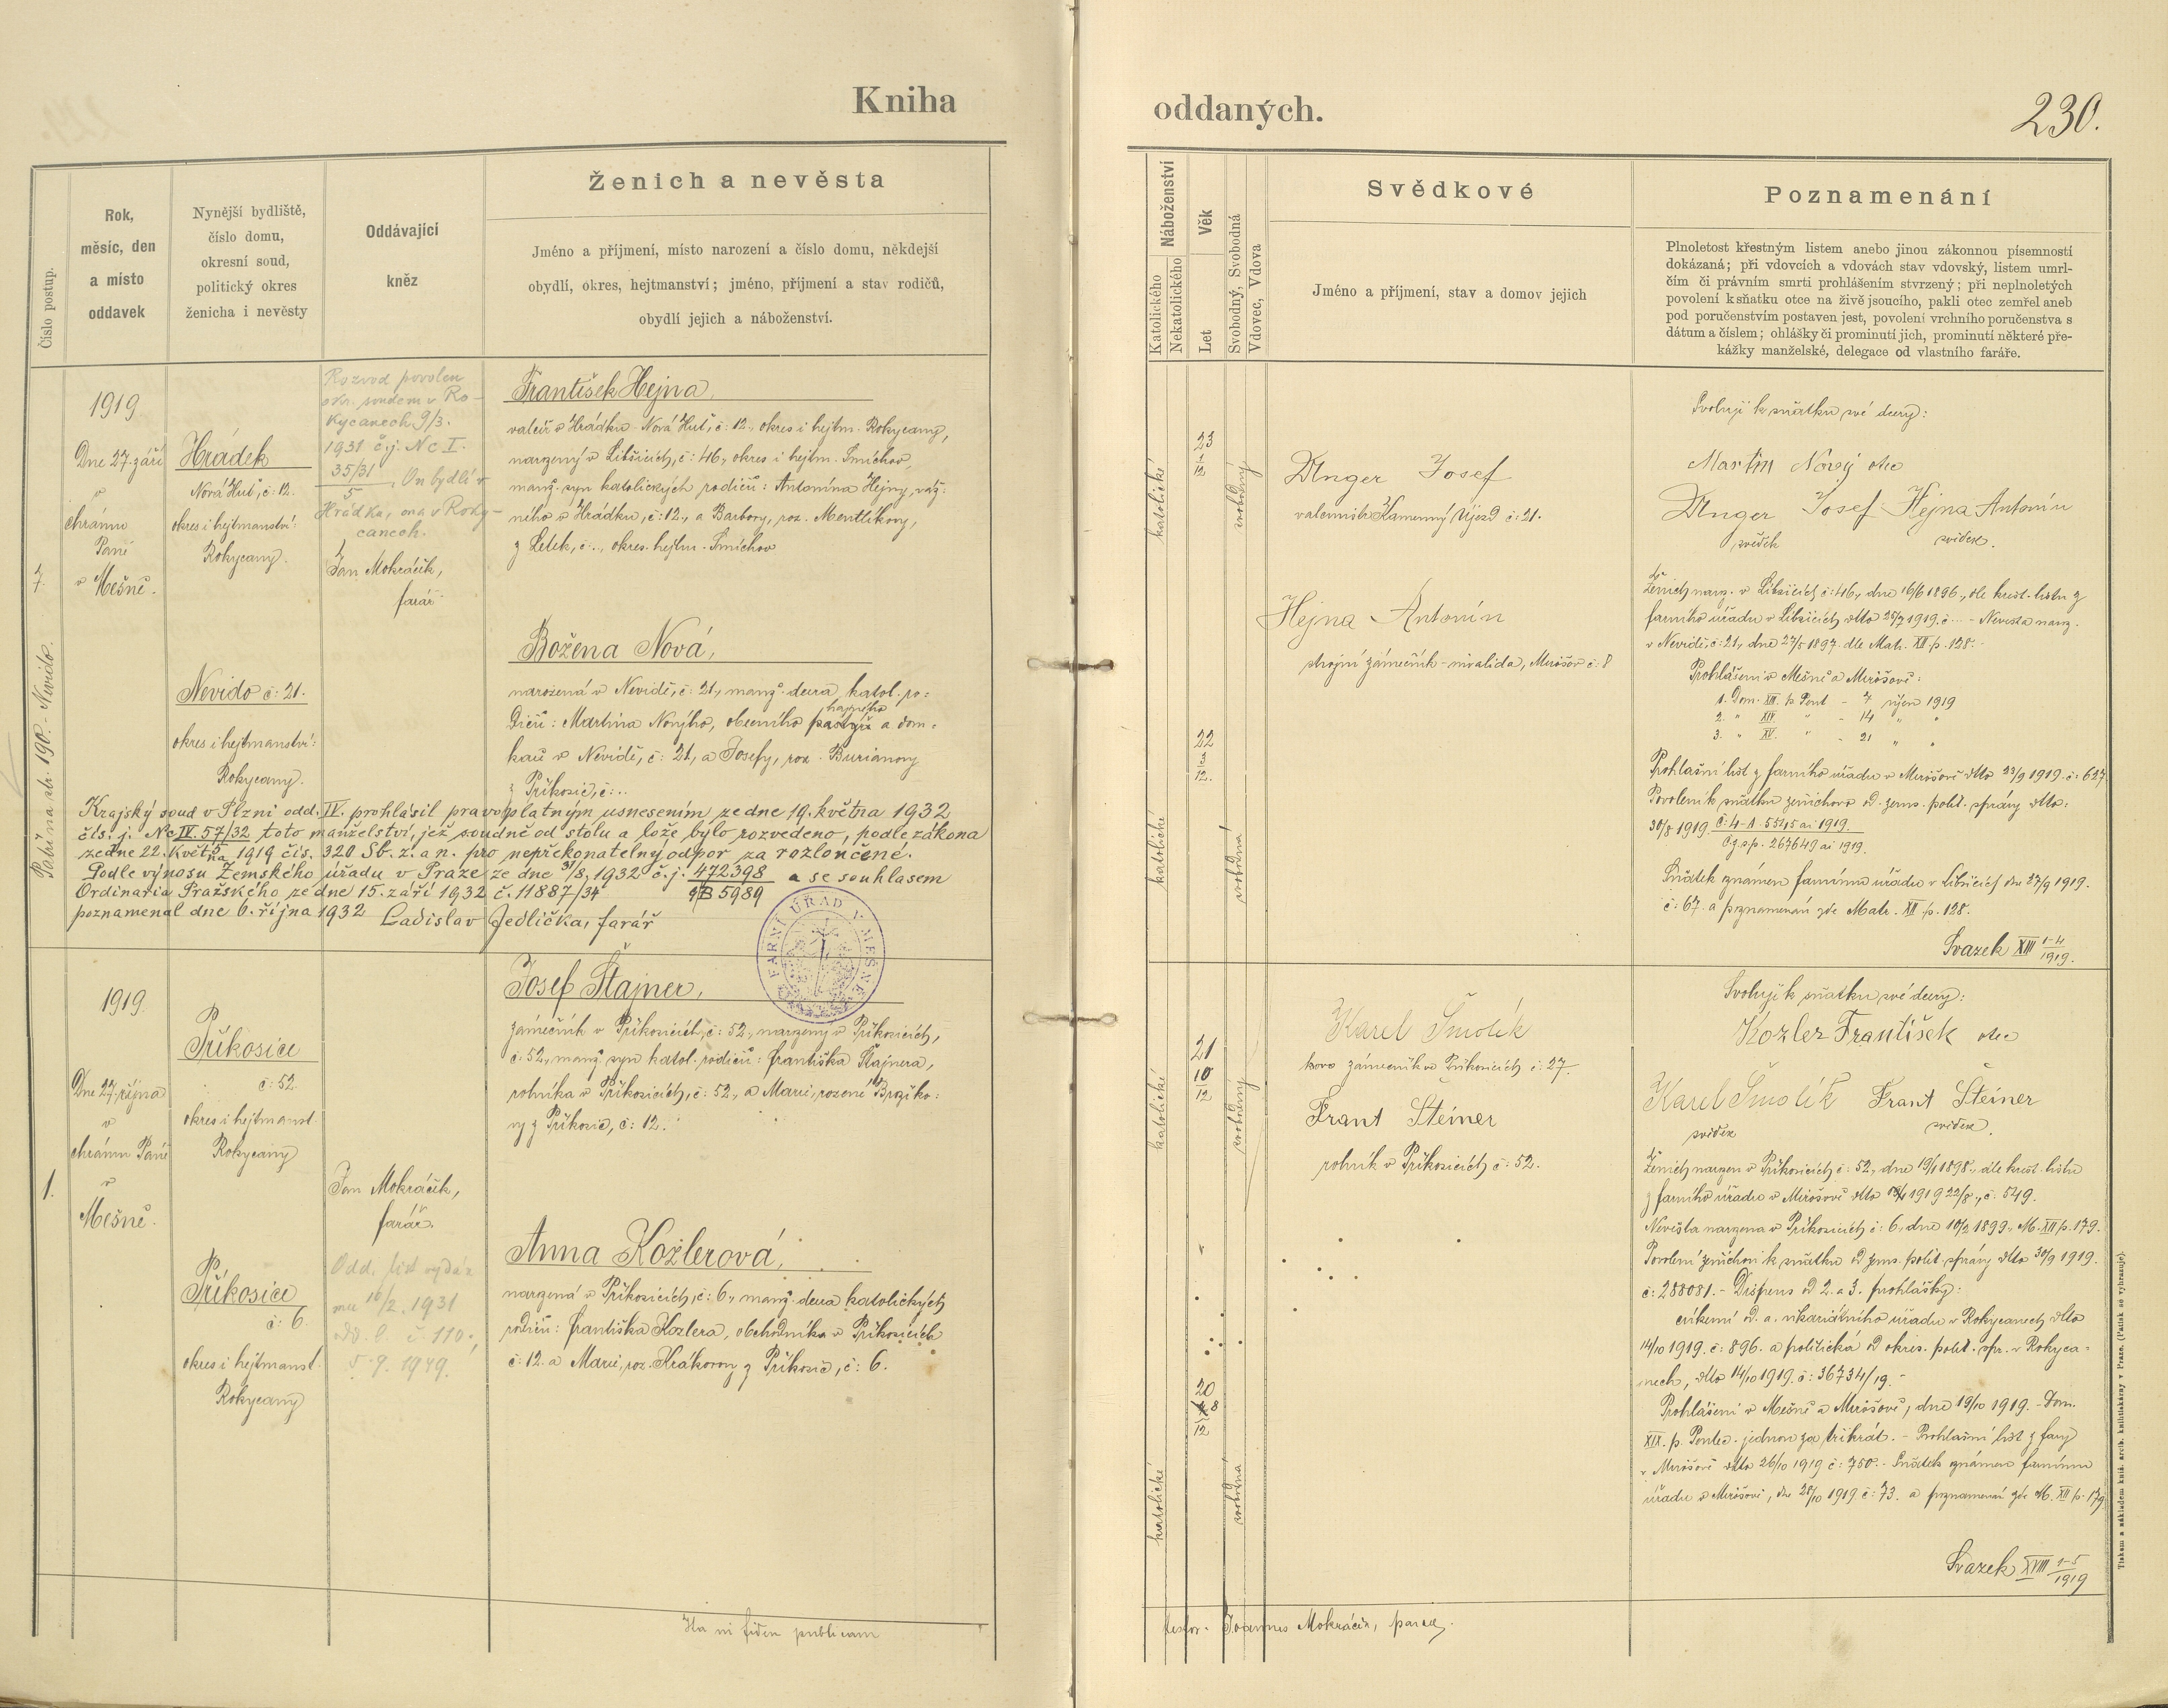 Kniha
oddaných.
230.
Číslo postup.
Rok,
měsíc, den
a místo
oddavek
Nynější bydliště,
číslo domu,
okresní soud,
politický okres
ženicha i nevěsty
Oddávající
kněz
Ženich a nevěsta
Jméno a příjmení, místo narození a číslo domu, někdejší
obydlí, okres, hejtmanství; jméno, příjmení a stav rodičů,
obydlí jejich a náboženství.
Náboženství
Katolického
Nekatolického
Věk
Let
Svobodný, Svobodná
Vdovec, Vdova
Svědkové
Jméno a příjmení, stav a domov jejich
Poznamenání
Plnoletost křestným listem anebo jinou zákonnou písemností
dokázaná; při vdovcích a vdovách stav vdovský, listem umrl-
čím či právním smrti prohlášením stvrzený; při neplnoletých
povolení k sňatku otce na živě jsoucího, pakli otec zemřel aneb
pod poručenstvím postaven jest, povolení vrchního poručenstva s
dátum a číslem; ohlášky či prominutí jich, prominutí některé pře-
kážky manželské, delegace od vlastního faráře.
7.
Patří na str. 190. - Nevido.
1919.
Dne 27. září
v
chrámu
Páně
v Mešně.
Hrádek
Nová Huť, č: 12.
okres i hejtmanství:
Rokycany.
Nevido č: 21.
okres i hejtmanství:
Rokycany.
Rozvod povolen
okr. soudem v Ro-
kycanech 9/3.
1931 č.j. Nc I.
35/31
5
, On bydlí v
Hrádku, ona v Roky-
canech.
Jan Mokráčik,
farář.
František Hejna,
valcíř v Hrádku - Nová Huť, č: 12., okres i hejtm. Rokycany,
narozený v Libšicích, č: 46., okres i hejtm. Smíchov,
manž. syn katolických rodičů: Antonína Hejny, váž-
ního v Hrádku, č: 12., a Barbory, roz. Mentlíkovy,
z Letek, č: .., okres. hejtm. Smíchov
Božena Nová,
narozená v Nevidě, č: 21., manž. dcera katol. ro-
dičů: Martina Nového, obecního pastýře a dom-
hajného
káře v Nevidě, č: 21, a Josefy, roz. Burianovy
z Příkosic, č: ..
Krajský soud v Plzni odd. IV. prohlásil pravoplatným usnesením ze dne 19. května 1932
čís. j. Nc IV. 57/32 toto manželství, jež soudně od stolu a lože bylo rozvedeno, podle zákona
5
ze dne 22. května 1919 čís. 320 Sb. z. a n. pro nepřekonatelný odpor za rozloučené.
Podle výnosu Zemského úřadu v Praze ze dne 31/8, 1932 č. j. 472398 a se souhlasem
Ordinaria Pražského ze dne 15. září 1932 č. 11887/34 B 5989
poznamenal dne 6. října 1932 Ladislav Jedlička, farář
FARNÍ ÚŘAD V MEŠNĚ
katolické
23
1
12
svobodný
katolické
22
12.
svobodná
Unger Josef
Kamenný Újezd č: 21.
Hejna Antonín
strojní zámečník - invalida, Mirošov č: 8
Svoluji k sňatku své dcery:
Martin Nový otec
Unger Josef Hejna Antonín
svědek svědek.
Ženich naroz. v Libšicích č: 46., dne 16/6 1896., dle křest. listu z
farního úřadu v Libšicích dtto 25/7 1919. č: ... - Nevěsta naroz.
v Nevidě, č: 21., dne 27/5 1897. dle Matr. XII. p. 128. -
Prohlášeni v Mešně a Mirošově:
1. Dom. XIII. p. Pent - 7 1919
2. " XIV. " - 14 " "
3. " XV. " - 21 " "
Prohlašní list z farního úřadu v Mirošově dtto 23/9 1919. č: 627
Povolení k sňatku ženichovo od zems. polit. správy dtto:
30/8 1919. č: 4-A-5545 ai 1919.
Č.z.s.p. 267649 ai 1919.
Sňatek oznámen farnímu úřadu v Libšicích dne 27/9 1919.
č: 67. a poznamenán zde Matr. XII. p. 128.
Svazek XIII 1-4
1919.
1.
1919.
Dne 27. října
v
chrámu Páně
v
Mešně.
Příkosice
č: 52.
okres i hejtmanst.
Rokycany
Příkosice
č: 6.
okres i hejtmanst.
Rokycany
Jan Mokráčik,
farář.
Odd. list vydán
16/2. 1931
č 110;
5. 9. 1949.
Josef Štajner,
zámečník v Příkosicích, č: 52., narozený v Příkosicích,
č: 52., manž. syn katol. rodičů: Františka Štajnera,
rolníka v Příkosicích, č: 52., a Marie, rozené Brožko-
vy z Příkosic, č: 12.
Anna Kozlerová,
narozená v Příkosicích, č: 6., manž. dcera katolických
rodičů: Františka Kozlera, obchodníka v Příkosicích
č: 12. a Marie, roz. Krákorovy z Příkosic, č: 6.
katolické
21
10
12
svobodný
katolické
20
8
12
svobodná
Karel Smolík
kovo zámečník v Příkosicích č: 27.
Frant Šteiner
rolník v Příkosicích č: 52.
Svoluji k sňatku své dcery:
Kozler František otec
Karel Smolík Frant Šteiner
svědek svědek.
Ženich narozen v Příkosicích č: 52., dne 19/1 1898., dle křest. listu
z farního úřadu v Mirošově dtto 1919 22/8., č: 549.
Nevěsta narozena v Příkosicích č: 6., dne 10/2 1899., M. XII p. 179.
Povolení ženichovi k sňatku od zems. polit. správy dtto 30/9 1919.
č: 288081. - Dispens od 2. a 3. prohlášky:
církevní od a. vikariátního úřadu v Rokycanech dtto
14/10 1919. č: 896. a politická od okres. polit. spr. v Rokyca-
nech, dtto 14/10 1919. č: 36734/19. -
Prohlášeni v Mešně a Mirošově, dne 19/10 1919. - Dom.
XIX. p. Pentec. jednou za třikrát. - Prohlašní list z fary
v Mirošově dtto 26/10 1919 č: 750. - Sňatek oznámen farnímu
úřadu v Mirošově, dne 28/10 1919. č: 73. a poznamenán zde M. XII p. 179.
Svazek XVIII 1-5
1919
Ita in fidem publicam
testor. Joannes Mokráčik, paroch.
Tiskem a nákladem kníž. arcib. knihtiskárny v Praze. (Patisk se vyhrazuje).